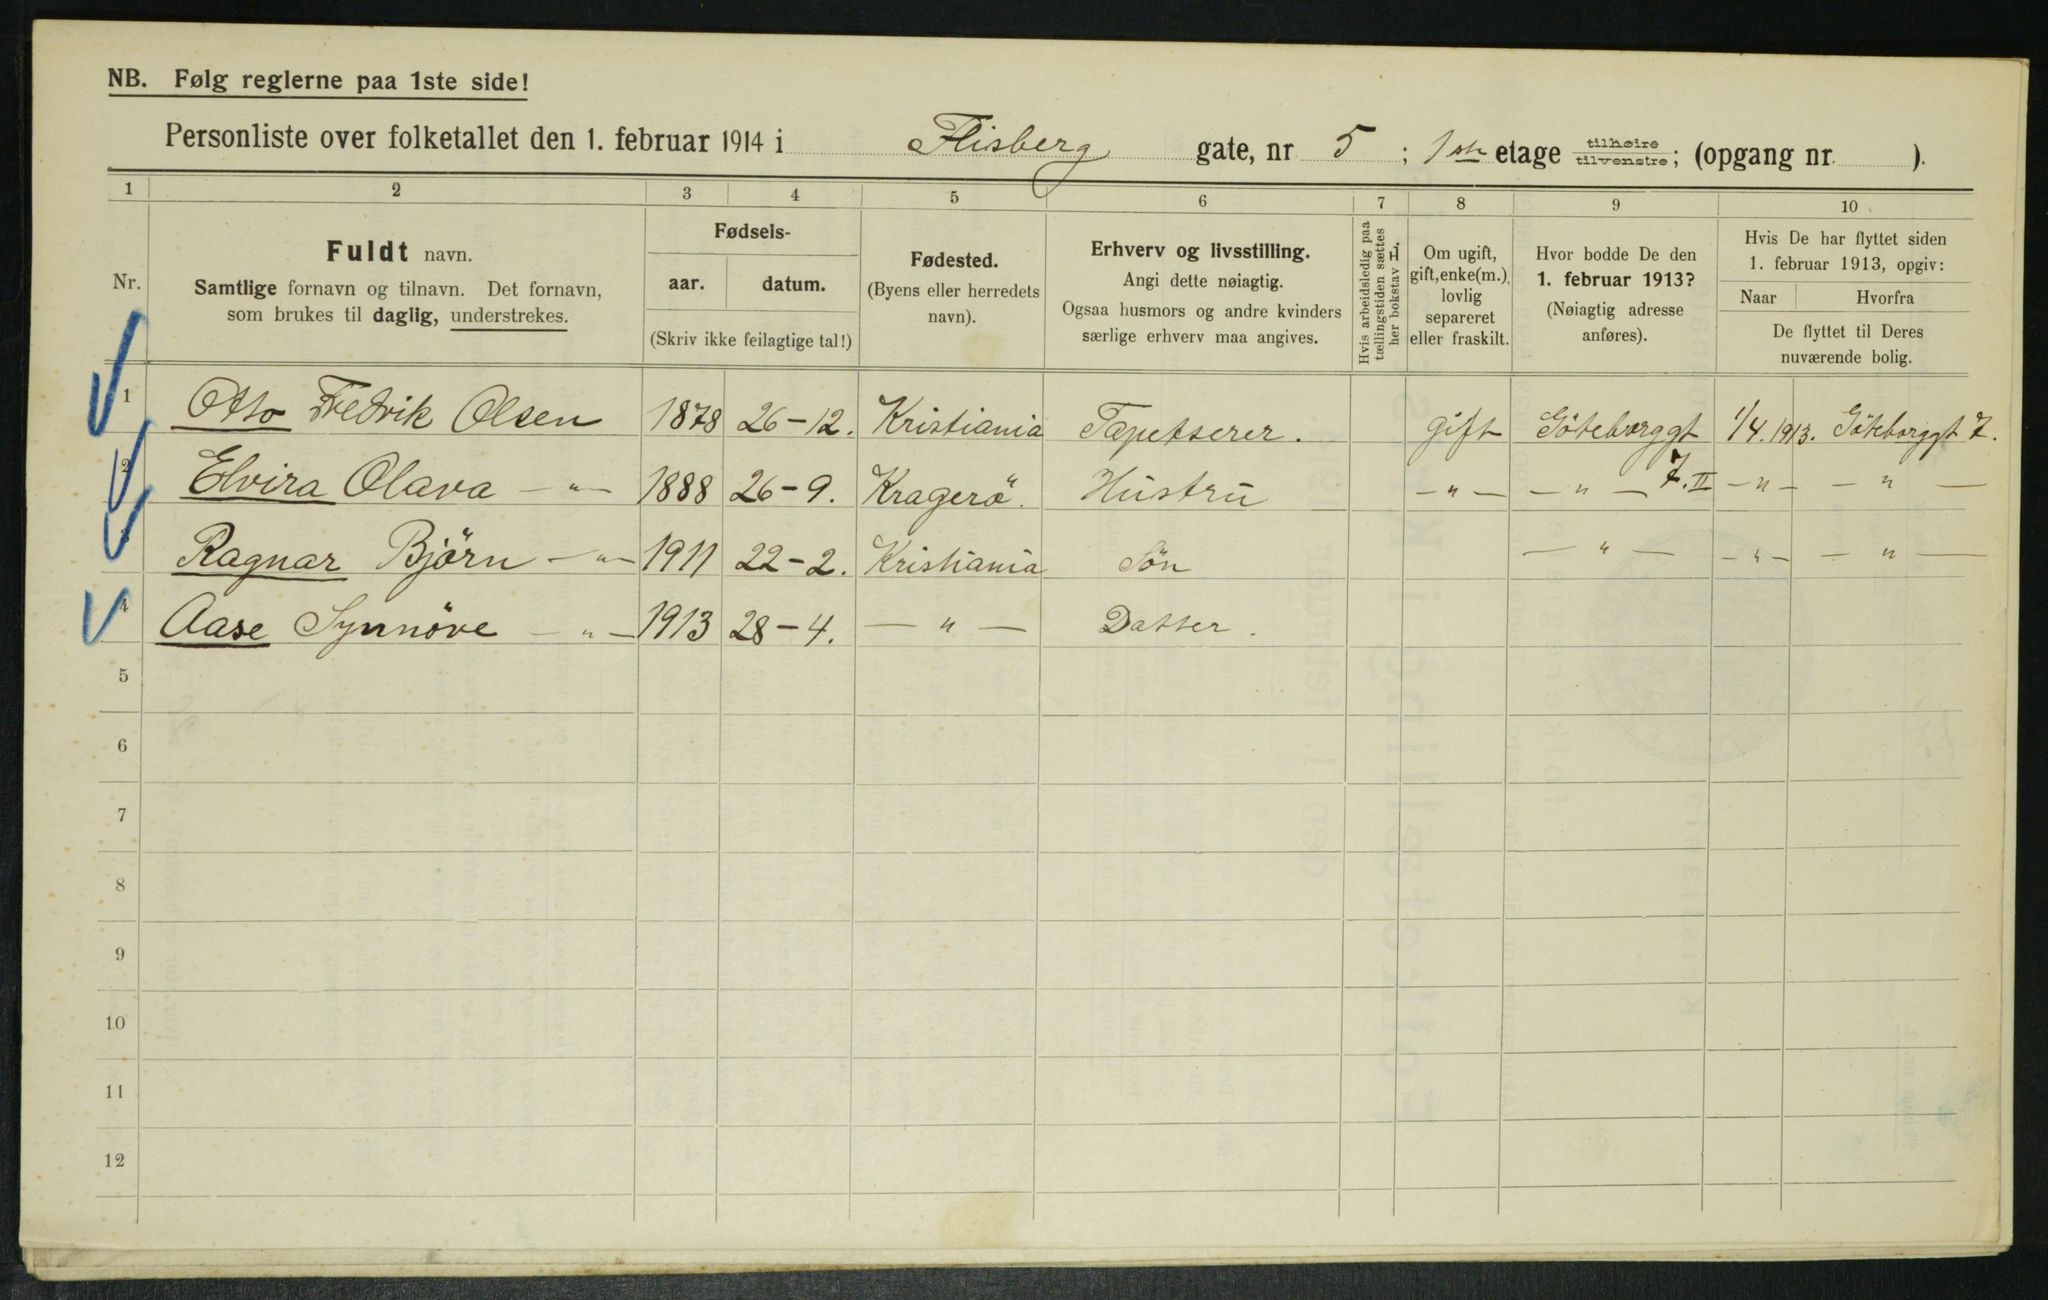 NB. Følg reglerne paa 1ste side!
Personliste over folketallet den 1. februar 1914 i Flisberg gate, nr 5 ; 1ste etage tilhøire tilvenstre; (opgang nr ).
1 2 3 4 5 6 7 8 9 10
Nr.
Fuldt navn.
Samtlige fornavn og tilnavn. Det fornavn,
som brukes til daglig, understrekes.
Fødsels-
aar. datum.
(Skriv ikke feilagtige tal!)
Fødested.
(Byens eller herredets
navn).
Erhverv og livsstilling.
Angi dette nøiagtig.
Ogsaa husmors og andre kvinders
særlige erhverv maa angives.
Hvis arbeidsledig paa
tællingstiden sættes
her bokstav L.
Om ugift,
gift, enke(m.),
lovlig
separeret
eller fraskilt.
Hvor bodde De den
1. februar 1913?
(Nøiagtig adresse
anføres).
Hvis De har flyttet siden
1. februar 1913, opgiv:
Naar Hvorfra
De flyttet til Deres
nuværende bolig.
1 Otto Fredrik Olsen 1878 26-12. Kristiania Tapetserer. gift Göteborggt 1/4. 1913. Göteborggt 7.
2 Elvira Olava — „ — 1888 26-9. Kragerö. Hustru — „ — — „ — 7. II — „ — — „ —
3 Ragnar Björn — „ — 1911 22-2. Kristiania Sön — „ — — „ — — „ —
4 Aase Synnöve — „ — 1913 28-4. — „ — Datter.
5
6
7
8
9
10
11
12